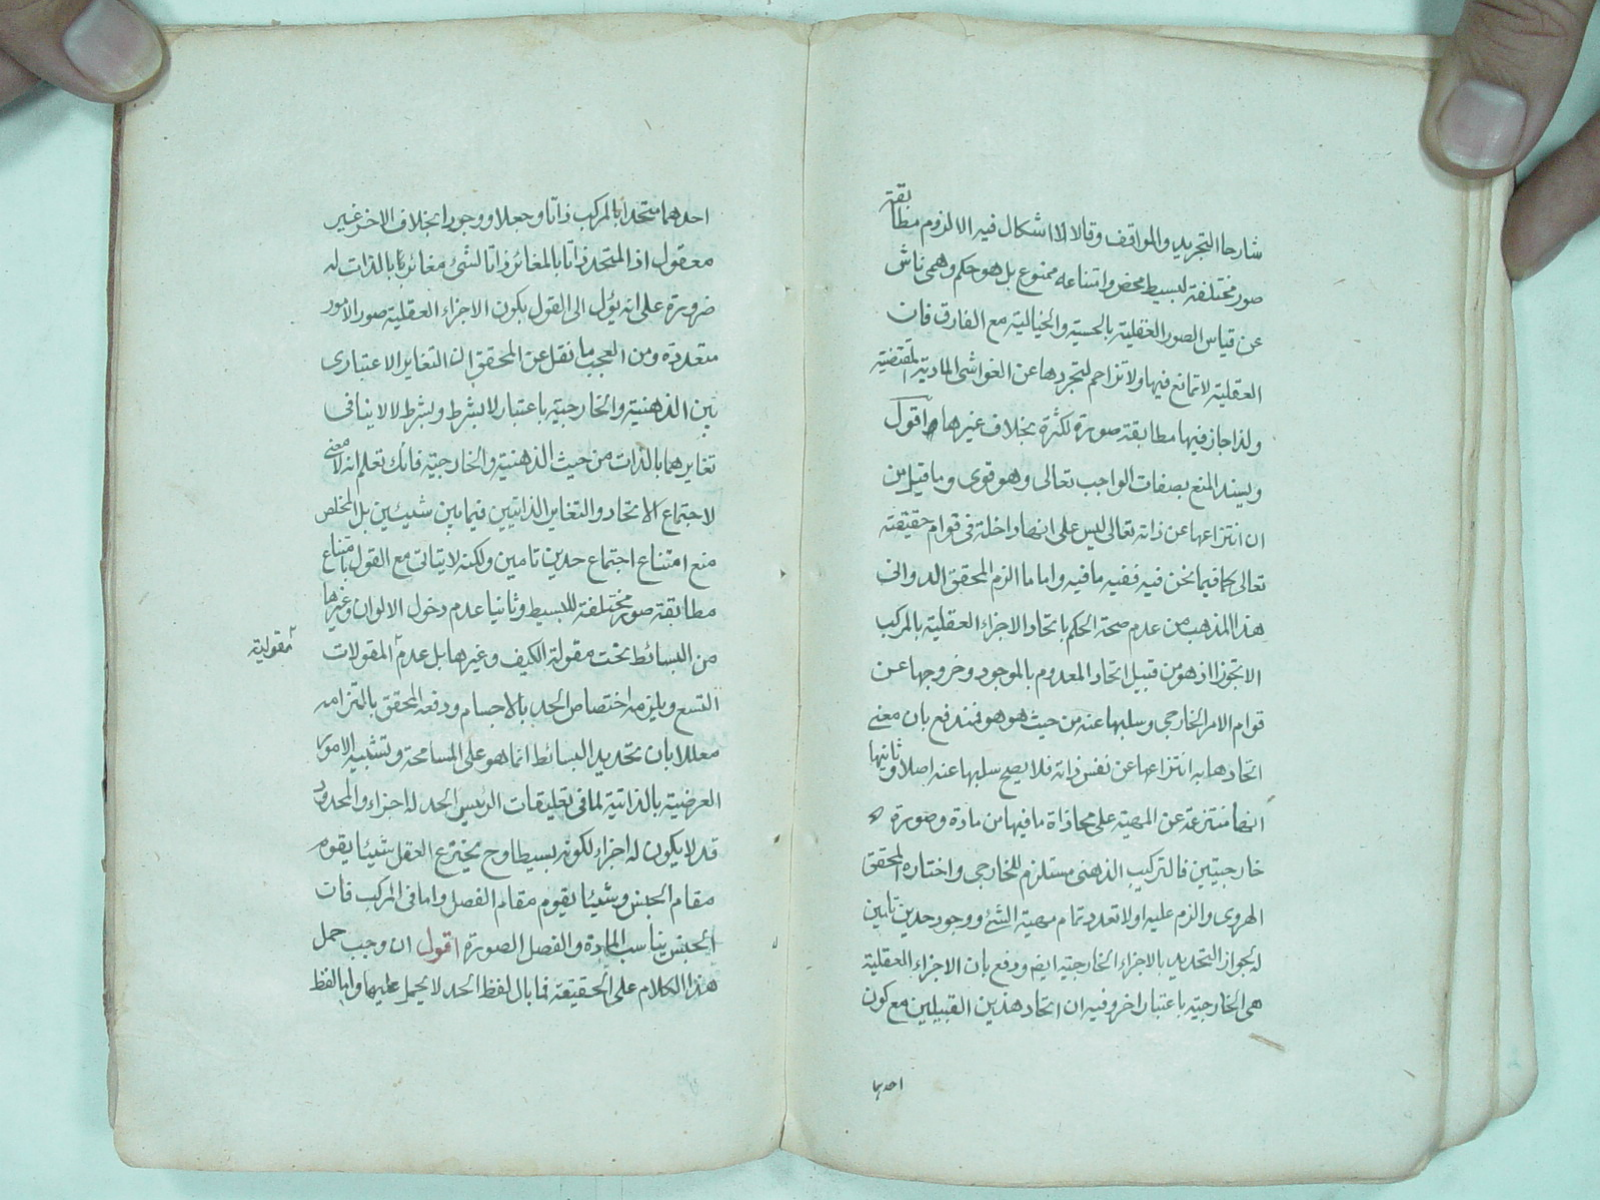 شارحا التجريد والمواقف وقالا لا اشكال فيه الا لزوم مطابقة
صور مختلفة لبسيط محض وامتناعه ممنوع بل هو حكم وهمى ناش
عن قياس الصور العقلية بالحسية والخيالية مع الفارق فان
العقلية لا تمانع فيها ولا تزاحم لتجردها عن الغواشى المادية المقتضية
ولذا جاز فيها مطابقة صورة لكثرة بخلاف غيرها اقول
ويسند المنع بصفات الواجب تعالى وهو قوى وما قيل من
ان انتزاعها عن ذاته تعالى ليس على انها داخلة فى قوام حقيقته
تعالى كما فيما نحن فيه ففيه ما فيه واما ما الزم المحقق الدوانى
هذا المذهب من عدم صحة الحكم باتحاد الاجزاء العقلية بالمركب
الا تجوزا اذ هو من قبيل اتحاد المعدوم بالموجود وخروجها عن
قوام الامر الخارجى وسلبها عنه من حيث هو هو فمندفع بان معنى
اتحادها به انتزاعها عن نفس ذاته فلا يصح سلبها عنه اصلا وثانيها
انها منتزعة عن المهية على محاذاة ما فيها من مادة وصورة
خارجيتين فالتركيب الذهنى مستلزم للخارجى واختاره المحقق
الهروى والزم عليه اولا تعدد تمام مهية الشئ ووجود حدين تامين
له لجواز التحديد بالاجزاء الخارجية ايضا ودفع بان الاجزاء العقلية
هى الخارجية باعتبار اخر وفيه ان اتحاد هذين القبيلين مع كون
احدهما
احدهما متحدا بالمركب ذاتا وجعلا ووجودا بخلاف الاخر غير
معقول اذ المتحد ذاتا بالمغائر ذاتا لشئ مغائر بالذات له
ضرورة على انه يؤل الى القول بكون الاجزاء العقلية صور الامور
متعددة ومن العجب ما نقل عن المحقق ان التغاير الاعتبارى
بين الذهنية والخارجية باعتبار لا بشرط وبشرط لا لا ينافى
تغايرهما بالذات من حيث الذهنية والخارجية فانك تعلم انه لا معنى
لاجتماع الاتحاد والتغاير الذاتيين فيما بين شيئين بل المخلص
منع امتناع اجتماع حدين تامين ولكنه لا يتاتى مع القول بامتناع
مطابقة صور مختلفة للبسيط وثانيا عدم دخول الالوان وغيرها
من البسائط تحت مقولة الكيف وغيرها بل عدم المقولات
مقولية
التسع ويلزمه اختصاص الحد بالاجسام ودفعه المحقق بالتزامه
معللا بان تحديد البسائط انما هو على المسامحة وتشبيه الامور
العرضية بالذاتية لما فى تعليقات الرئيس الحد له اجزاء والمحدود
قد لا يكون له اجزاء لكونه بسيطا وح يخترع العقل شيئا يقوم
مقام الجنس وشيئا يقوم مقام الفصل واما فى المركب فان
الجنس يناسب المادة والفصل الصورة اقول ان وجب حمل
هذا الكلام على الحقيقة فما بال لفظ الحد لا يحمل عليها وابا لفظ